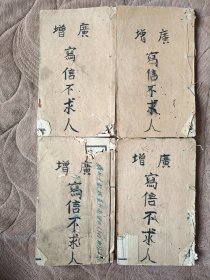 增廣
寫信不求人
增廣
寫信不求人
增廣
寫信不求人
增廣
寫信不求人